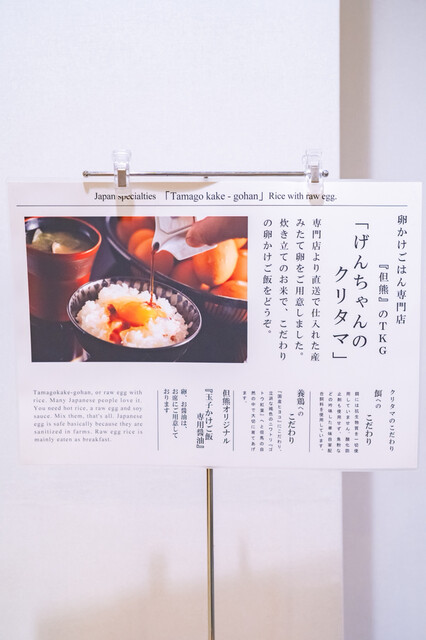 Japan Specialties 「Tamago kake - gohan」 Rice with raw egg.
卵かけごはん専門店
『但熊』のTKG
「げんちゃんの
クリタマ」
専門店より直送で仕入れた産
みたて卵をご用意しました。
炊き立てのお米で、こだわり
の卵かけご飯をどうぞ。
クリタマのこだわり
餌への
こだわり
養鶏への
こだわり
但熊オリジナル
『玉子かけご飯
専用醤油』
卵、お醤油は、
お席にご用意して
おります
Tamagokake-gohan, or raw egg with
rice. Many Japanese people love it.
You need hot rice, a raw egg and soy
sauce. Mix them, that's all. Japanese
egg is safe basically because they are
sanitized in farms. Raw egg rice is
mainly eaten as breakfast.